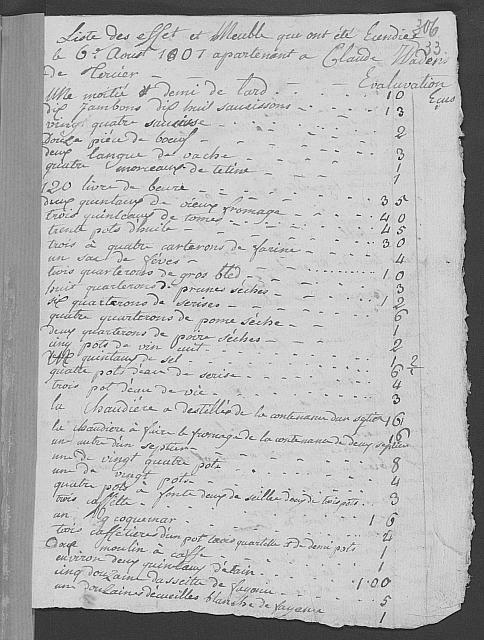 306
33.
Liste des effet et Meuble que ont été
le 6e Aoust 1801 apartenant a Claude
de
Evaluvation
Ecus
Une moitié et demi de lard 10
dix Jambons dix huit saucissons 13
vingt quatre saucisse
Douze piéce de boeuf 2
deux langue de vache 3
quatre morceaux de tetine 1
120 livre de beure 1
deux quintaux de vieux fromage 35
trois quintaux de tomes 40
trente pots d'huile 45
trois à quatre carterons de farine 30
un sac de féves 4
trois quarterons de gros bléd 10
huit quarterons de prunes séches 3
six quarterons de serises 12
quatre quarterons de pome séche 6
deux quarterons de poire séches 1
cinq pots de vin cuit 2
quintaux de sel 1
quatre pot d'eau de serise 6
trois pot d'eau de vie 4
3
la chaudiére a destillés de la contenance d'un septier 16
la chaudiére a faire le fromage de la contenance de deux septier 16
un autre d'un septier
un de vingt quatre pots 8
un de vingt pots 4
quatre pots a fonte deux de seille deux de trois pots 3
trois
un coquemar 16
trois caffetiéres d'un pot trois quartette & de demi pots 4
moulin à caffé 1
environ deux quintaux d'etain 1
cinq douzaine d'assiette de fayence 100
une douzaines d'ecuelles blanche de fayence 5
1